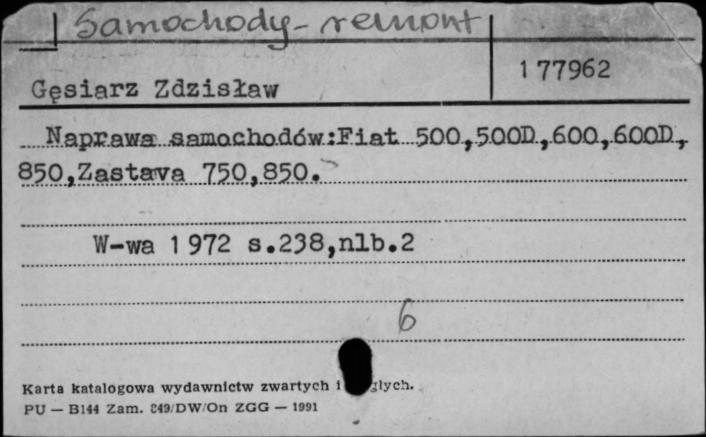 Samochody - remont
Gęsiarz Zdzisław
177962
Naprawa samochodów:Fiat 500,500D,600,600D,
850,Zastava 750,850.
W-wa 1972 s.238,nlb.2
6
Karta katalogowa wydawnictw zwartych i
PU — B144 Zam. 849/DW/On ZGG — 1991